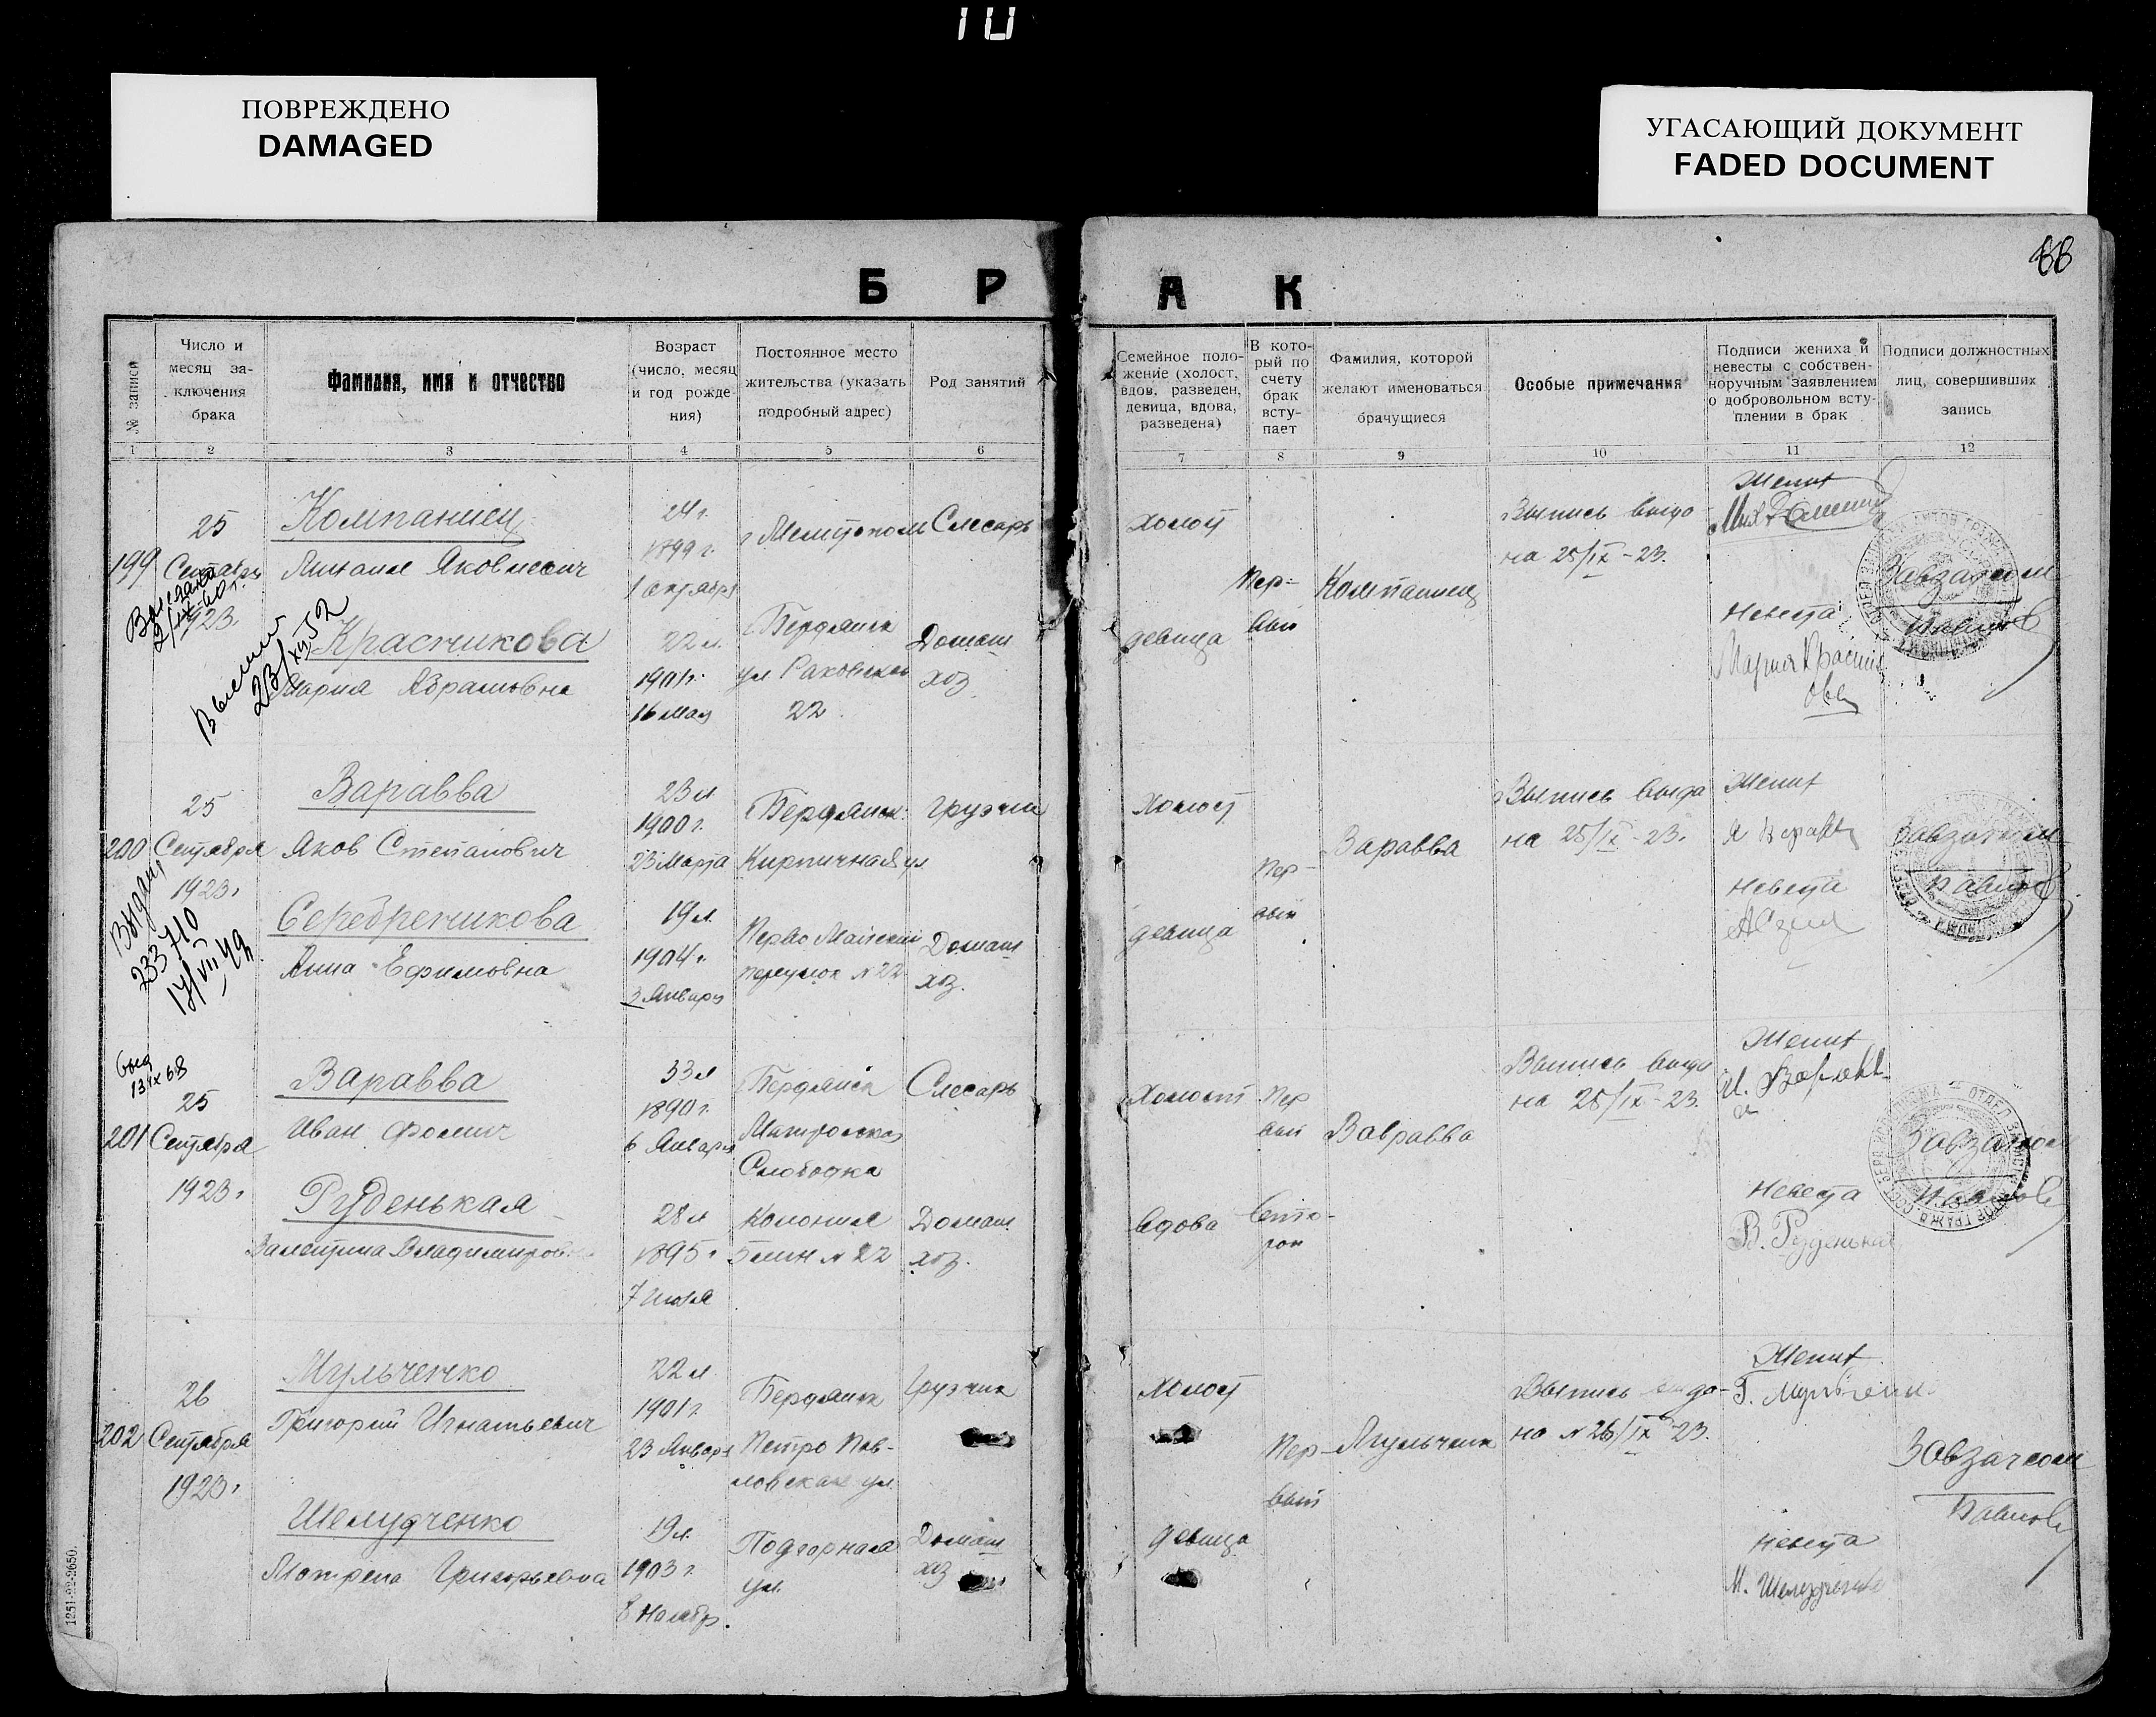 10
ПОВРЕЖДЕНО
DAMAGED
УГАСАЮЩИЙ ДОКУМЕНТ
FADED DOCUMENT
БРАК
№ записи
Число и
месяц за-
ключения
брака
Фамилия, имя и отчество
Возраст
(число, месяц
и год рожде-
ния)
Постоянное место
жительства (указать
подробный адрес)
Род занятий
Семейное поло-
жение (холост,
вдов, разведен,
девица, вдова,
разведена)
В кото-
рый по
счету
брак
всту-
пает
Фамилия, которой
желают именоваться
брачущиеся
Особые примечания
Подписи жениха и
невесты с собствен-
норучным заявлением
о добровольном всту-
плении в брак
Подписи должностных
лиц, совершивших
запись
1 2 3 4 5 6 7 8 9 10 11 12
199
25
1923
Компаниец
Михаил Яковлевич
24 г.
1899 г.
1 октября
г Мелитополь
Слесарь
холост
Пер-
вый
Компаниец
Выпись выда
на 25/IX-23.
Жених
Завзагсом
Павлов
23/XII 52
Красникова
Мария Абрамовна
22 л.
1901 г.
16 мая
Бердянск
ул Раковская
22
Домаш
хоз
девица
Невеста
200
25
Сентября
1923г
233710
17/VII 49
Варавва
Яков Степанович
23 л
1900 г.
23 Марта
Бердянск
Кирпичная ул
грузчик
холост
Пер-
вый
Варавва
Выпись выда
на 25/IX-23.
Жених
Завзагсом
Павлов
Серебреникова
Анна Ефимовна
19 л.
1904 г.
3 Января
Перво Майский
переулок N 22
Домаш
хоз.
девица
Невеста
выд
25
201
Сентября
1923г
Варавва
Иван Фомич
33 л
1890 г.
6 Января
Бердянск
Слободка
Слесарь
Холост
Пер
вый
Вавравва
Выпись выда
на 25/IX-23.
Жених
Завзагсом
Павлов
Руденькая
Валентина
28 л
1895 г
7 июля
Колония
5 лин N 22
Домаш
хоз.
вдова
Вто-
рой
Невеста
В. Руденькая
26
202
Сентября
1923г
Мульченко
Григорий Игнатьевич
22 л.
1901 г
23 Января
Бердянск
Петро Пав-
ловская ул.
грузчик
Холост
Пер-
вый
Выпись выда-
на N 26/IX-23.
Жених
Завзагсом
Павлов
Шелудченко
Мотрена Григорьевна
19 л.
1903 г
8 Ноябр.
Подгорная
ул.
Домаш
хоз
девица
Невеста
М. Шелудченко
1251-22-2650.